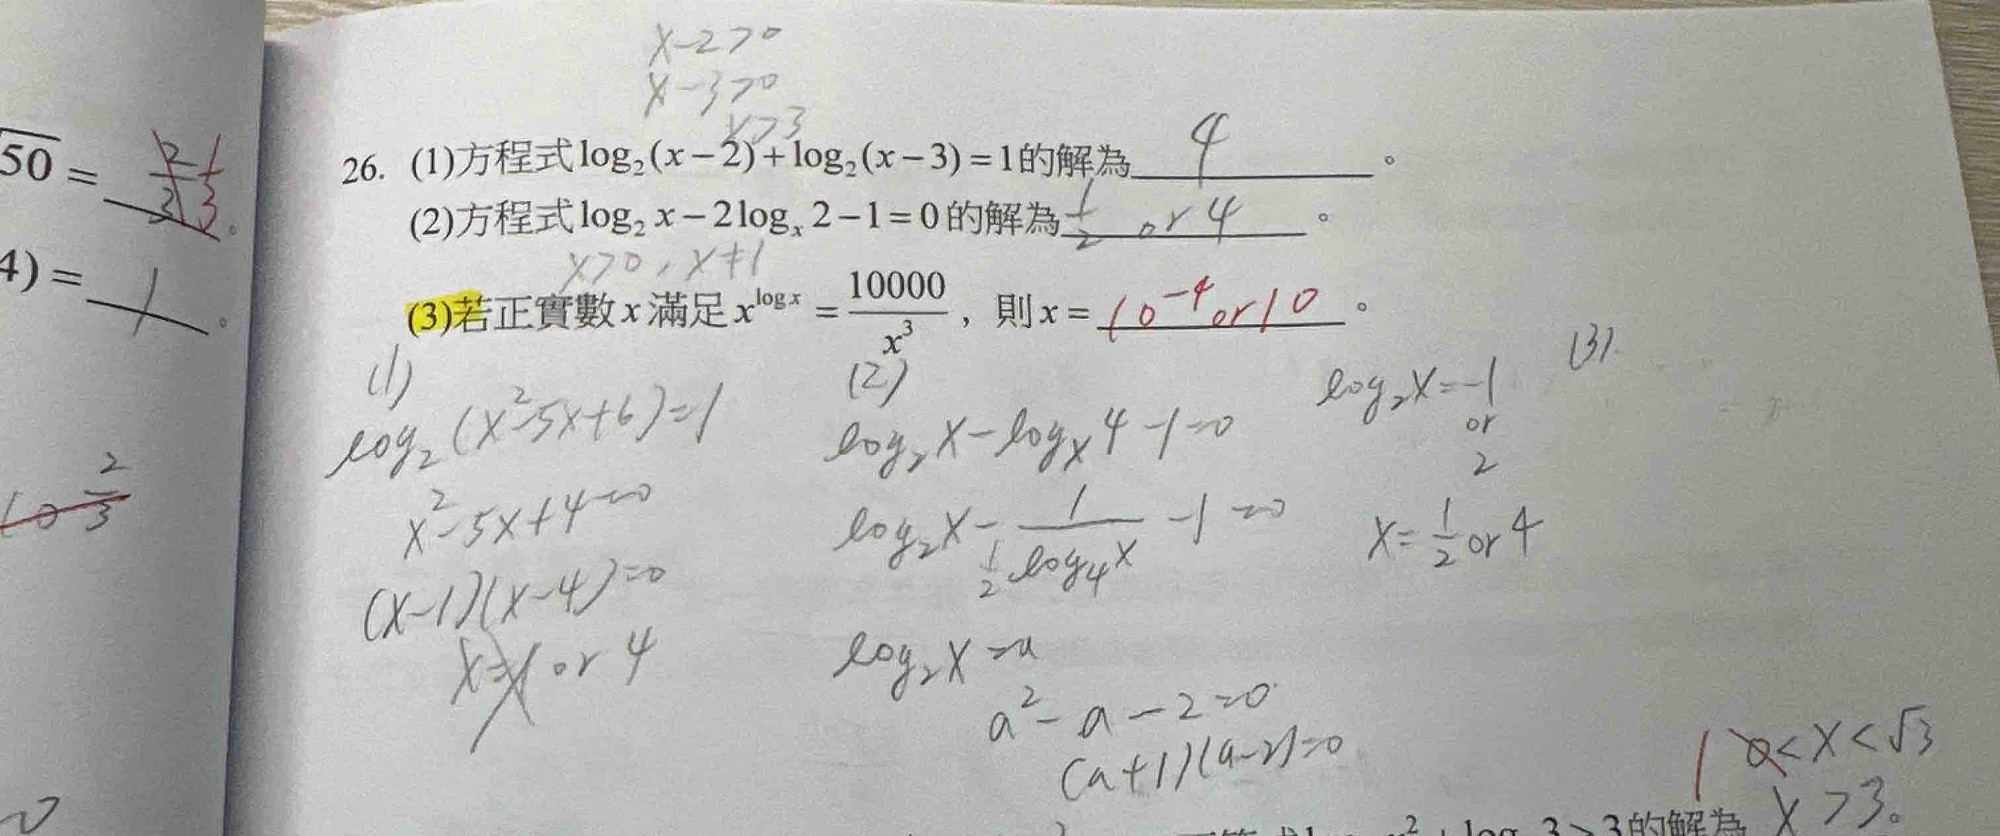 x-2>0
x-3>0
x>3
√50 = 1/3 。
26. (1)方程式 log₂(x-2)+log₂(x-3)=1的解為 4 。
(2)方程式 log₂ x-2logₓ 2-1=0 的解為 1/2 or 4 。
x>0, x≠1
4) = 1 。
(3)若正實數 x 滿足 x^(log x) = 10000/x³ , 則 x = 10⁻⁴ or 10 。
(1)
log₂(x²-5x+6)=1
x²-5x+4=0
(x-1)(x-4)=0
x=1 or 4
(2)
log₂x-logₓ4-1=0
log₂x - 1/(1/2 log₄x) -1=0
log₂x=a
a²-a-2=0
(a+1)(a-2)=0
log₂x=-1
or
2
x=1/2 or 4
(3)
10 2/3
1 0<x<√3
x>3。
3>3的解為